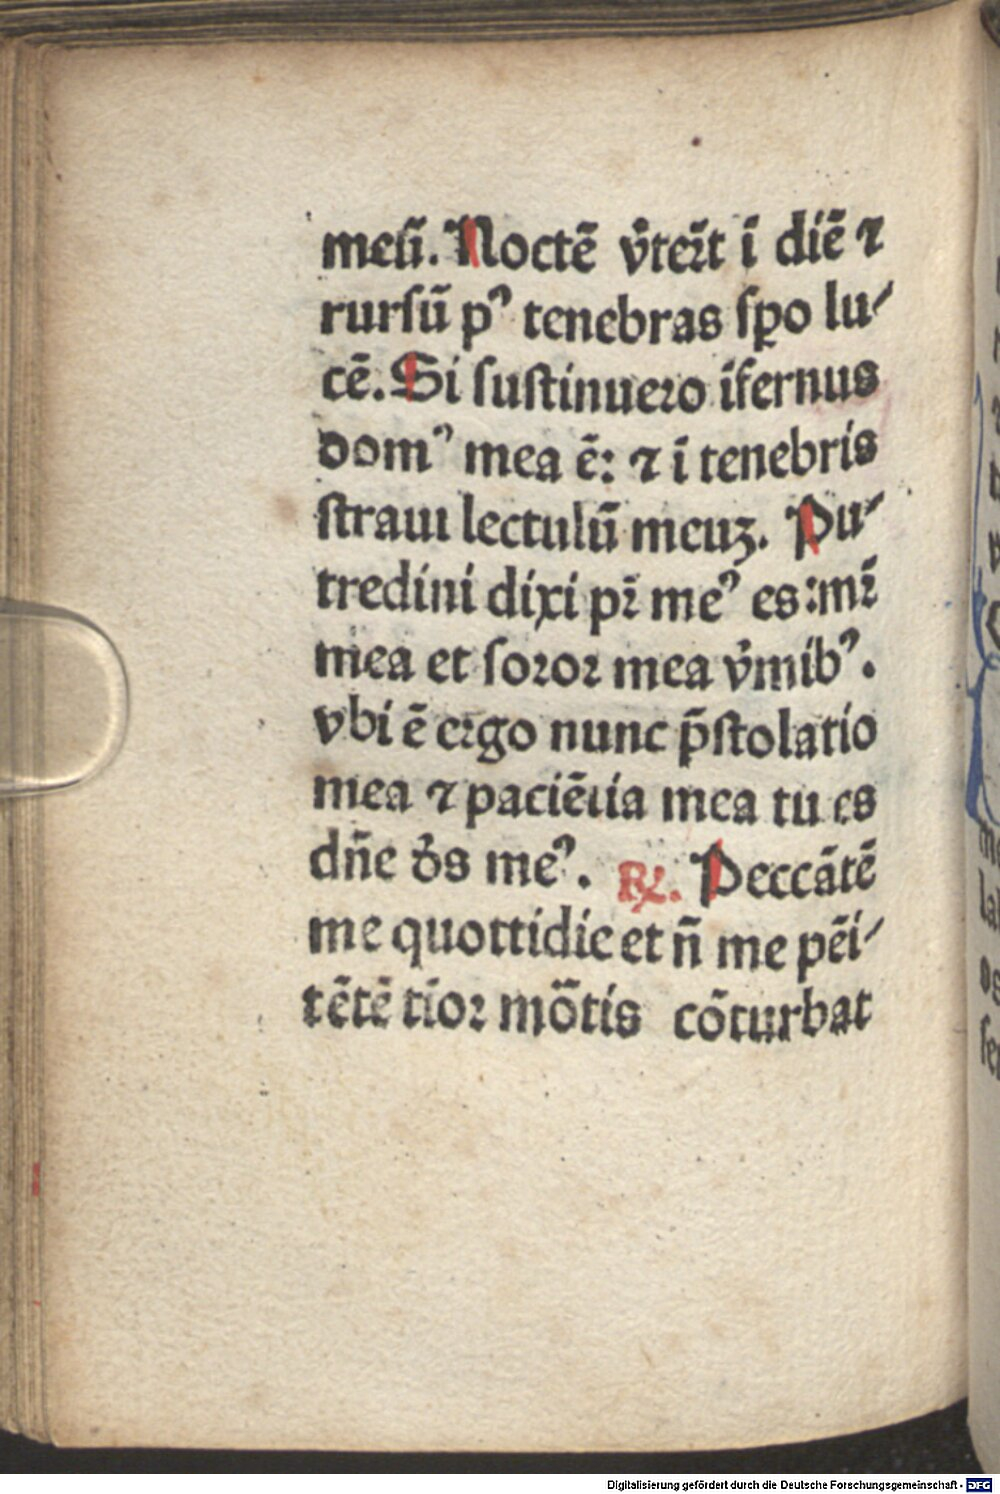 meū. Noctē v̾terūt ī diē ⁊
rursū pꝰ tenebras spo lu⸗
cē. Si sustinuero īfernus
domꝰ mea ē: ⁊ ī tenebris
straui lectulū meuꝫ. Pu⸗
tredini dixi pr̄ meꝰ es: mr̄
mea et soror mea v̾mibꝰ.
vbi ē ergo nunc p̄stolatio
mea ⁊ paciētia mea tu es
dn̄e d̾s meꝰ. ℟. Peccātē
me quottidie et n̄ me pēi⸗
tētē tīor mōtis cōturbat
Digitalisierung gefördert durch die Deutsche Forschungsgemeinschaft - DFG